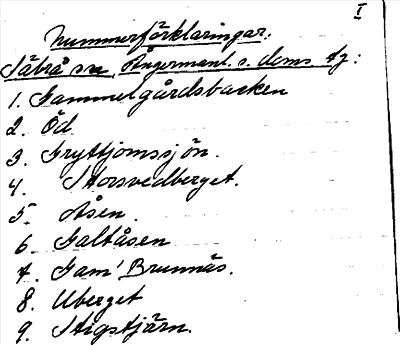 I
Nummerförklaringar.
Säbrå sn, Ångermanl. s. doms. Ag:
1. Gammelgårdsbacken
2. Öd
3. Gryttjomssjön.
4. Storsvedberget.
5. Åsen.
6. Galtåsen
7. Gam' Brunnäs.
8. Uberget
9. Stigstjärn.